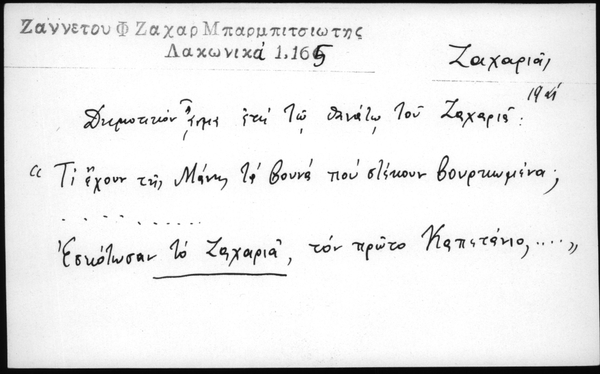 Ζαννετου Φ Ζαχαρ Μπαρμπιτσιωτης
Λακωνικά 1.165
Ζαχαριᾶς
1921
Δημοτικὸν ᾆσμα ἐπὶ τῷ θανάτῳ τοῦ Ζαχαριᾶ:
“ Τί ἔχουν τῆς Μάνης τὰ βουνά πού στέκουν βουρκωμένα;
. . . . . . . . . . .
Ἐσκότωσαν τὸ Ζαχαριᾶ, τόν πρῶτο Καπετάνιο, .... „